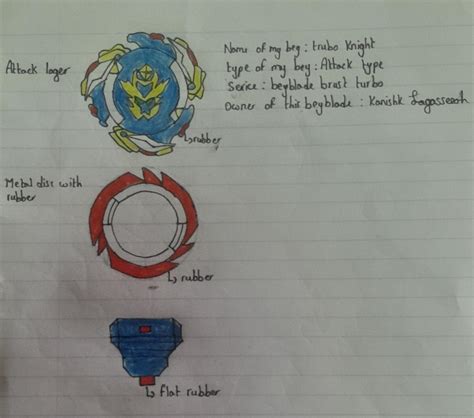 Name of my bey : trubo Knight
type of my bey : Attack type
Serice : beyblade brust turbo
Owner of this beyblade : Kanishk
Attack lager
↳rubber
Metal disc with
rubber
↳ rubber
↳ flat rubber